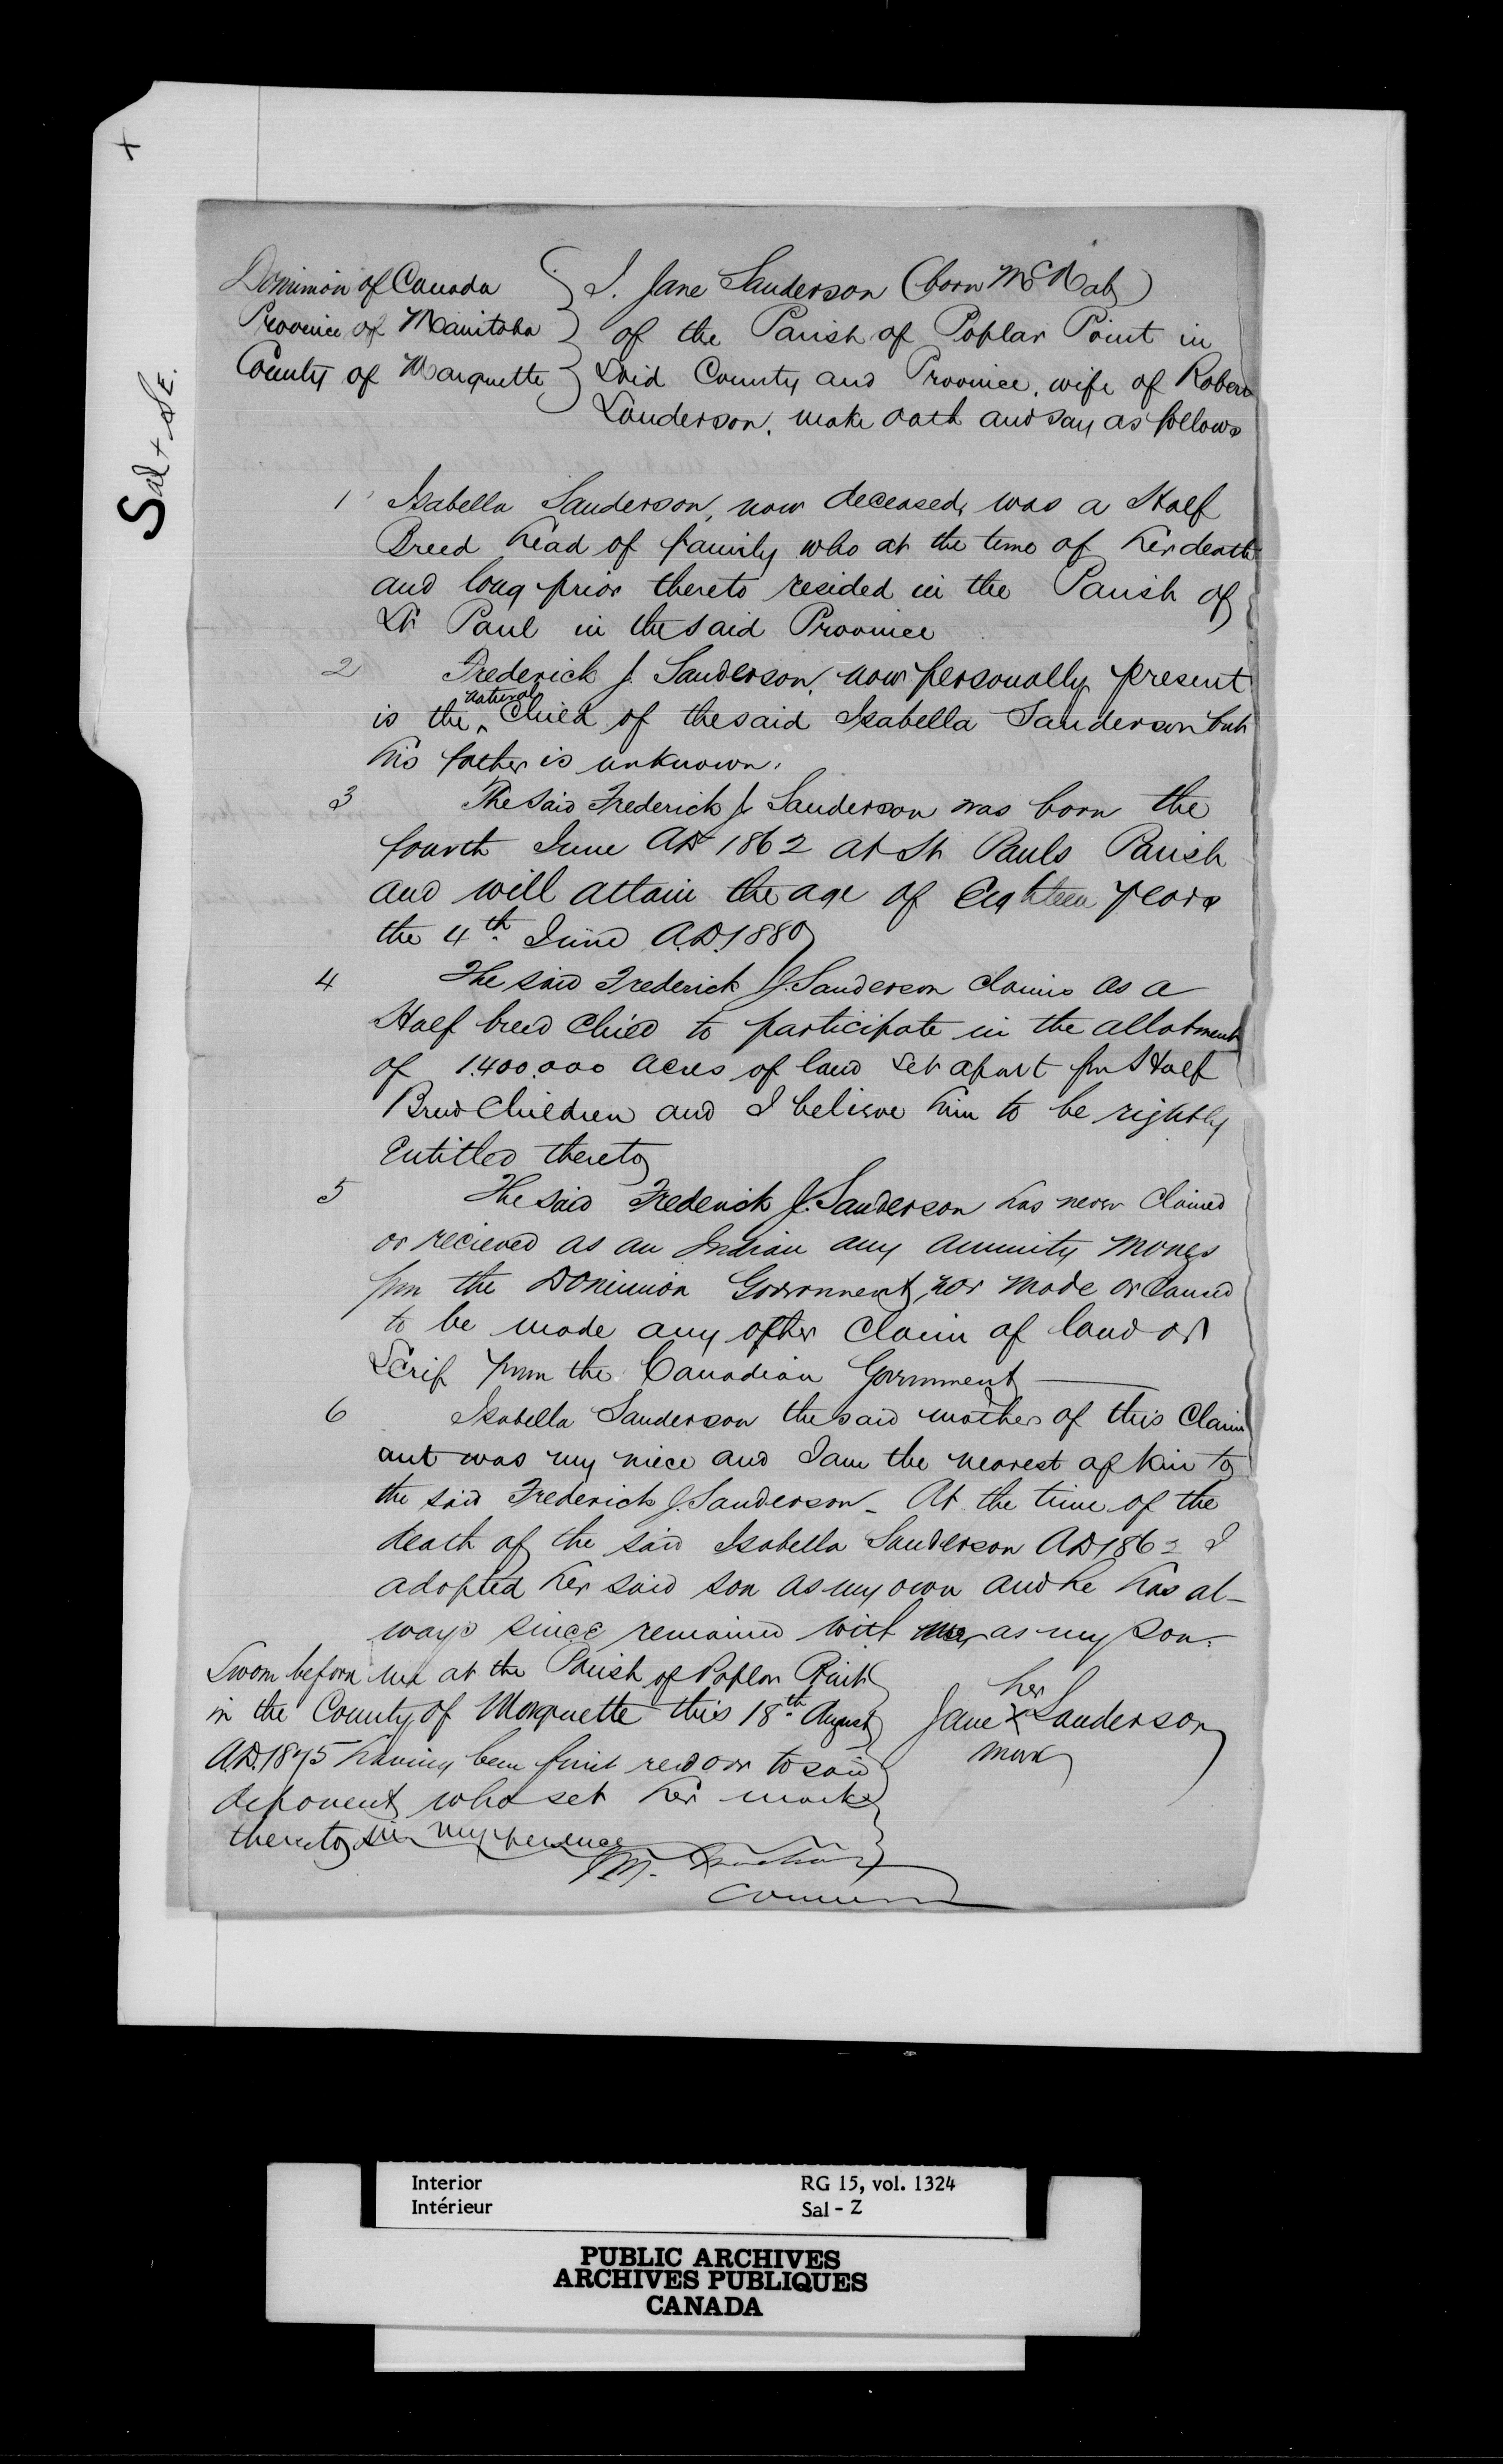 X
Sal + Se.
Dominion of Canada
Province of Manitoba
County of Marquette
I. Jane Sanderson (born McNab)
of the Parish of Poplar Point in
Said County and Province, wife of Robert
Sanderson, make oath and say as follows
1 Isabella Sanderson, now deceased, was a Half
Breed head of family who at the time of her death
and long prior thereto resided in the Parish of
St Paul in the said Province
2 Frederick J. Sanderson, now personally present
is the natural Child of the said Isabella Sanderson but
his father is unknown.
3 The Said Frederick J. Sanderson was born the
fourth June AD 1862 at St Pauls Parish
and will attain the age of Eighteen years
the 4th June A.D. 1880
4 The said Frederick J. Sanderson claims as a
Half breed Child to participate in the allotment
of 1.400.000 acres of land set apart for Half
Breed Children and I believe him to be rightly
Entitled thereto
5 The said Frederick J. Sanderson has never claimed
or recieved as an Indian any annuity moneys
from the Dominion Government, nor made or Caused
to be made any other Claim of land or
Scrip from the Canadian Government
6 Isabella Sanderson the said mother of this Claim
ant was my niece and I am the nearest of kin to
the said Frederick J. Sanderson - At the time of the
death of the said Isabella Sanderson AD 1862 I
adopted her said son as my own and he has al-
ways since remained with me as my son.
Sworn before me at the Parish of Poplar Point
in the County of Marquette this 18th August
A.D. 1875 having been first read over to said
deponent who set her mark
thereto in my presence
her
Jane X Sanderson
mark
M.
Interior
Intérieur
RG 15, vol. 1324
Sal - Z
PUBLIC ARCHIVES
ARCHIVES PUBLIQUES
CANADA